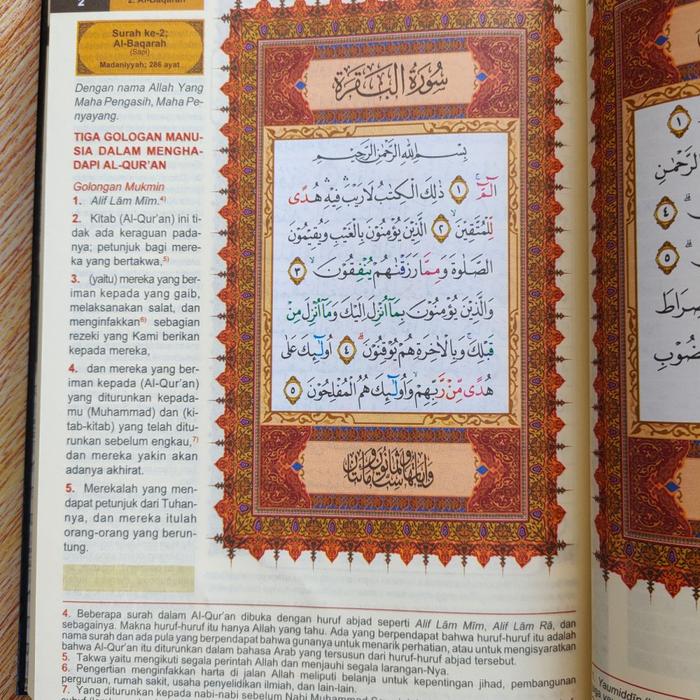 2
2. Al-Baqarah
Surah ke-2;
Al-Baqarah
(Sapi)
Madaniyyah; 286 ayat
Dengan nama Allah Yang
Maha Pengasih, Maha Pe-
nyayang.
TIGA GOLOGAN MANU-
SIA DALAM MENGHA-
DAPI AL-QUR'AN
Golongan Mukmin
1. Alif Lām Mīm.4)
2. Kitab (Al-Qur'an) ini ti-
dak ada keraguan pada-
nya; petunjuk bagi mere-
ka yang bertakwa,5)
3. (yaitu) mereka yang ber-
iman kepada yang gaib,
melaksanakan salat, dan
menginfakkan6) sebagian
rezeki yang Kami berikan
kepada mereka,
4. dan mereka yang ber-
iman kepada (Al-Qur'an)
yang diturunkan kepada-
mu (Muhammad) dan (ki-
tab-kitab) yang telah ditu-
runkan sebelum engkau,7)
dan mereka yakin akan
adanya akhirat.
5. Merekalah yang men-
dapat petunjuk dari Tuhan-
nya, dan mereka itulah
orang-orang yang berun-
tung.
سُوْرَةُ الْبَقَرَةِ
بِسْمِ اللّٰهِ الرَّحْمٰنِ الرَّحِيْمِ
الۤمّۤ ۚ ١ ذٰلِكَ الْكِتٰبُ لَا رَيْبَ ۛ فِيْهِ ۛ هُدًى
لِّلْمُتَّقِيْنَ ۙ ٢ الَّذِيْنَ يُؤْمِنُوْنَ بِالْغَيْبِ وَيُقِيْمُوْنَ
الصَّلٰوةَ وَمِمَّا رَزَقْنٰهُمْ يُنْفِقُوْنَ ۙ ٣
وَالَّذِيْنَ يُؤْمِنُوْنَ بِمَآ اُنْزِلَ اِلَيْكَ وَمَآ اُنْزِلَ مِنْ
قَبْلِكَ ۚ وَبِالْاٰخِرَةِ هُمْ يُوْقِنُوْنَ ۗ ٤ اُولٰۤىِٕكَ عَلٰى
هُدًى مِّنْ رَّبِّهِمْ ۙ وَاُولٰۤىِٕكَ هُمُ الْمُفْلِحُوْنَ ٥
4. Beberapa surah dalam Al-Qur'an dibuka dengan huruf abjad seperti Alif Lām Mīm, Alif Lām Rā, dan
sebagainya. Makna huruf-huruf itu hanya Allah yang tahu. Ada yang berpendapat bahwa huruf-huruf itu adalah
nama surah dan ada pula yang berpendapat bahwa gunanya untuk menarik perhatian, atau untuk mengisyaratkan
bahwa Al-Qur'an itu diturunkan dalam bahasa Arab yang tersusun dari huruf-huruf abjad tersebut.
5. Takwa yaitu mengikuti segala perintah Allah dan menjauhi segala larangan-Nya.
6. Pengertian menginfakkan harta di jalan Allah meliputi belanja untuk kepentingan jihad, pembangunan
perguruan, rumah sakit, usaha penyelidikan ilmiah, dan lain-lain.
7. Yang diturunkan kepada nabi-nabi sebelum Nabi Muhammad
١
الرَّحْمٰنِ
٤
٥
صِرَاطَ
Yaumiddīn